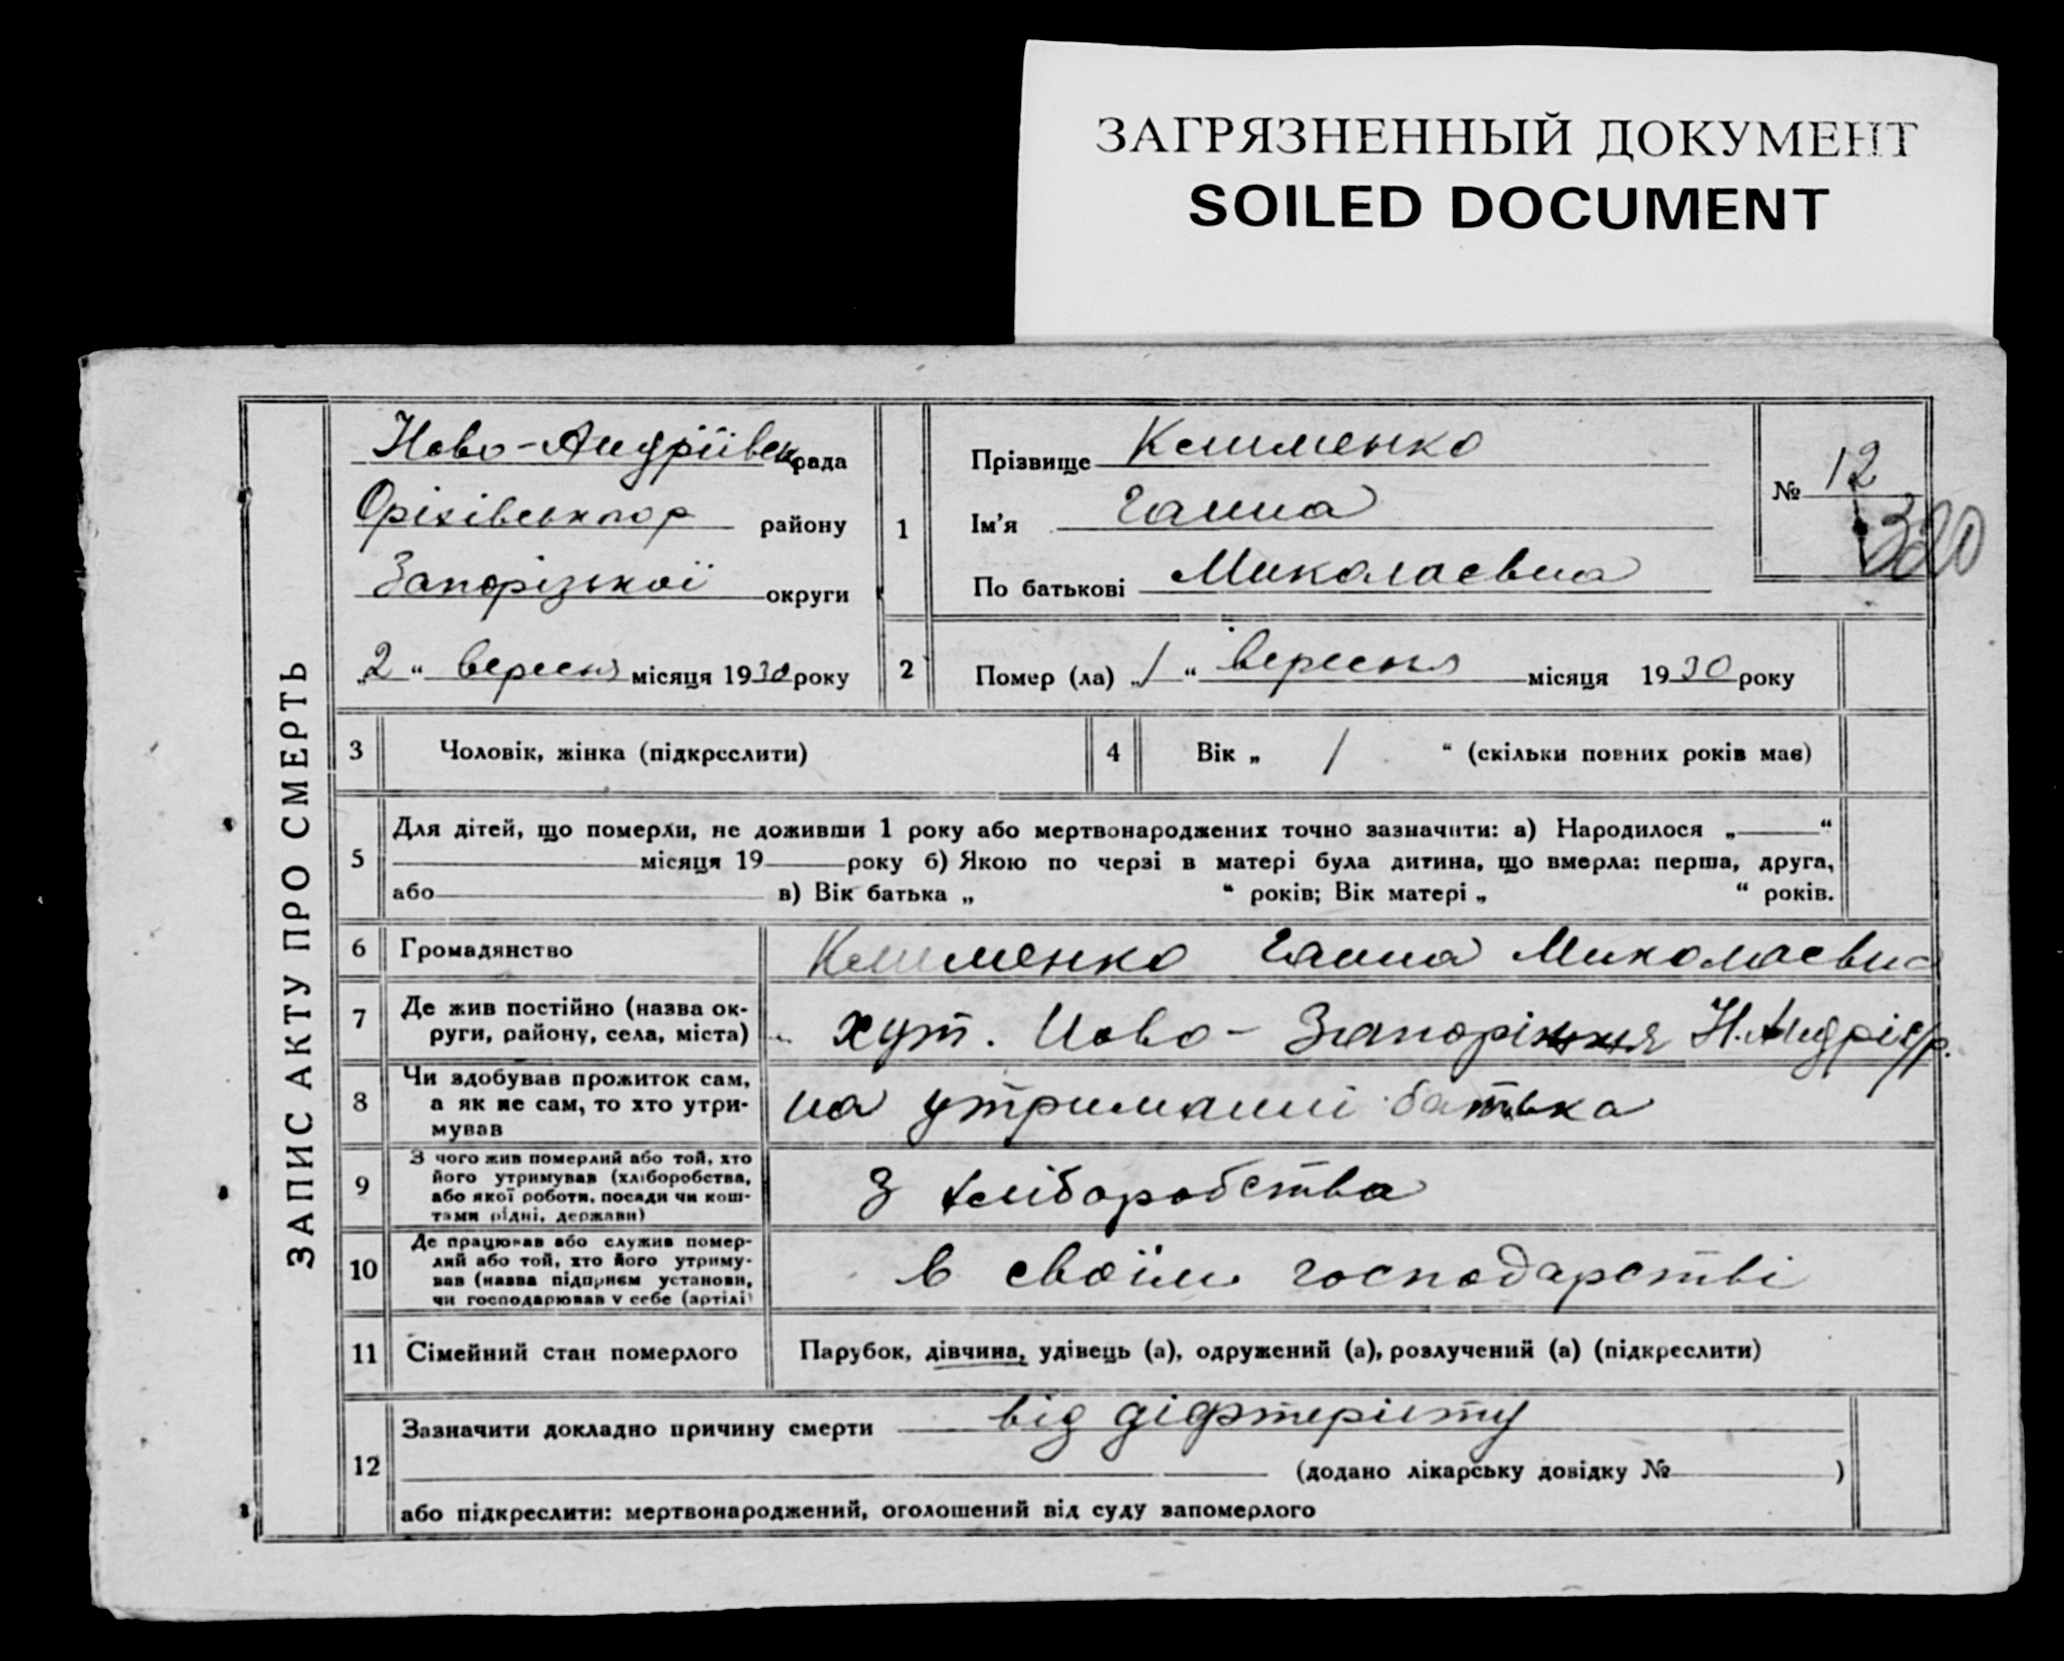 ЗАГРЯЗНЕННЫЙ ДОКУМЕНТ
SOILED DOCUMENT
ЗАПИС АКТУ ПРО СМЕРТЬ
Ново-Андріївськ рада
Оріхівського району
Запорізької округи
„2“ вересня місяця 1930 року
1
Прізвище Клименко
Ім'я Ганна
По батькові Миколаевна
№ 12
320
2 Помер (ла) „1“ вересня місяця 1930 року
3 Чоловік, жінка (підкреслити)
4 Вік „ 1 “ (скільки повних років має)
5
Для дітей, що померли, не доживши 1 року або мертвонароджених точно зазначити: а) Народилося „ “
місяця 19 року б) Якою по черзі в матері була дитина, що вмерла: перша, друга,
або в) Вік батька „ “ років; Вік матері „ “ років.
6 Громадянство Клименко Ганна Миколаевна
7 Де жив постійно (назва ок-
руги, району, села, міста) хут. Ново-Запоріжжя Н. Андрі с/р.
8 Чи здобував прожиток сам,
а як не сам, то хто утри-
мував
на утриманні батька
9 З чого жив померлий або той, хто
його утримував (хліборобства,
або якої роботи, посади чи кош-
тами рідні, держави)
З хліборобства
10 Де працював або служив помер-
лий або той, хто його утриму-
вав (назва підприєм установи,
чи господарював у себе (артілі)
в своїм господарстві
11 Сімейний стан померлого Парубок, дівчина, удівець (а), одружений (а), розлучений (а) (підкреслити)
12
Зазначити докладно причину смерти від діфтеріту
(додано лікарську довідку № )
або підкреслити: мертвонароджений, оголошений від суду запомерлого